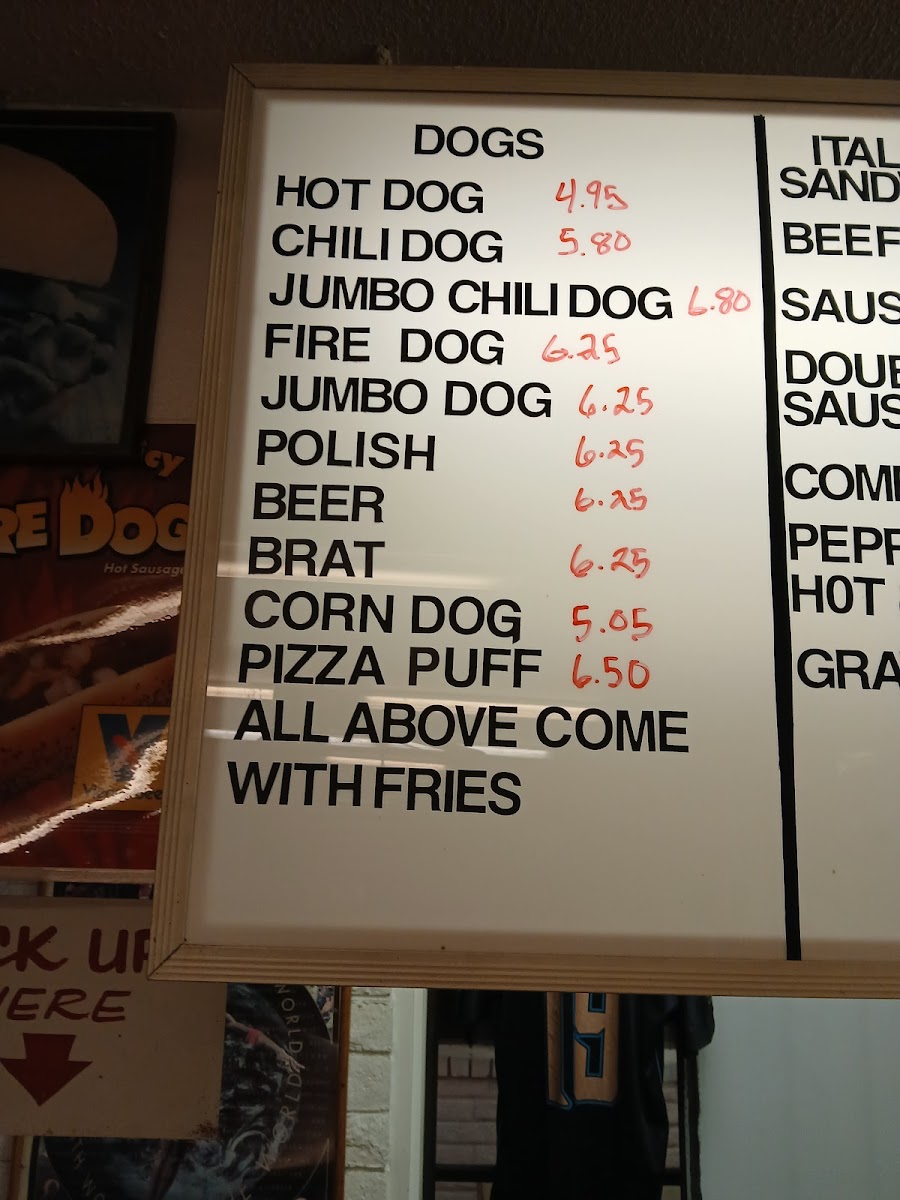 DOGS
HOT DOG 4.95
CHILI DOG 5.80
JUMBO CHILI DOG 6.80
FIRE DOG 6.25
JUMBO DOG 6.25
POLISH 6.25
BEER 6.25
BRAT 6.25
CORN DOG 5.05
PIZZA PUFF 6.50
ALL ABOVE COME
WITH FRIES
ITAL
SAND
BEEF
SAUS
DOUB
SAUS
COM
PEPP
HOT
GRA
CY
RE DOG
Hot Sausage
CK UP
HERE
WORLD